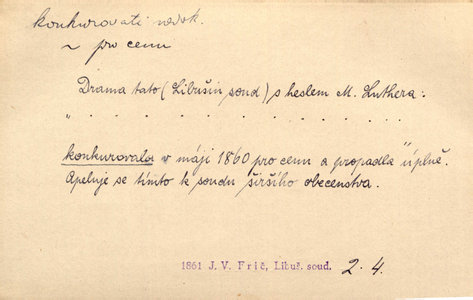 konkurovati nedok.
~ pro cenu
Drama tato (Libušin soud) s heslem M. Luthera:
" . . . . . . . . . . . . . . . . . .
konkurovala v máji 1860 pro cenu a propadla úplně.
Apeluje se tímto k soudu širšího obecenstva.
1861 J. V. Frič, Libuš. soud. 2. 4.